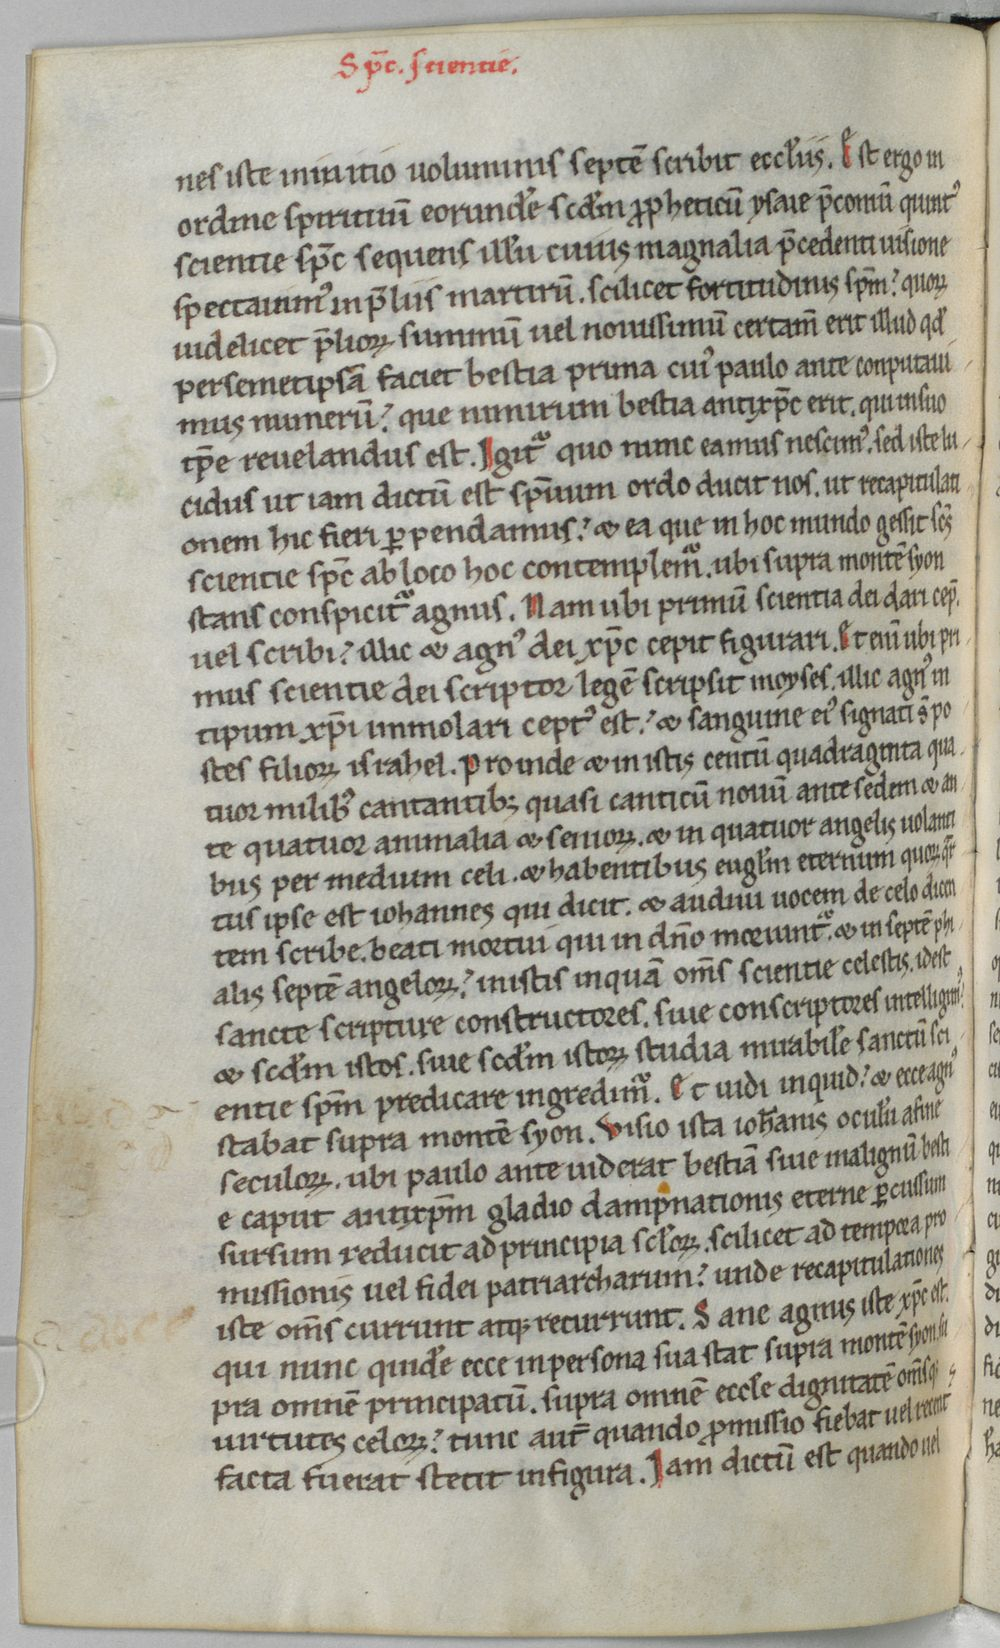 Sp̄c. scientie.
nes iste in initio uoluminis septē scribit eccl̓iis. Est ergo in
ordine spirituū eorund̓e scd̓m ꝓpheticū ysaie p̄coniū quint᾽
scientie sp̄c sequens illū cuius magnalia p̄cedenti uisione
spectauim᾽ in p̄liis martirū. scilicet fortitudinis sp̄m? quoꝝ
uidelicet p̄lioꝝ summū uel nouissimū certam̄ erit illud qd̓
per semetipsā faciet bestia prima cui᾽ paulo ante conputaui
mus numerū? que nimirum bestia antixp̄c erit. qui in suo
tp̄e reuelandus est. Igit᷑ quo nunc eamus nescim᾽. sed iste lu
cidus ut iam dictū est sp̄uum ordo ducit nos. ut recapitulati
onem hic fieri ꝑpendamus? & ea que in hoc mundo gessit sc̄s
scientie sp̄c ab loco hoc contemplem᷑. ubi supra montē syon
stans conspicit᷑ agnus. Nam ubi primū scientia dei dari cep̄.
uel scribi? illic & agn᾽ dei xp̄c cepit figurari. Et eni̅ ubi pri
mus scientie dei scriptor legē scripsit moyses. illic agn᾽ in
tipum xp̄i immolari cept᾽ est? & sanguine ei᾽ signati s̄ po
stes filioꝝ israhel. Proinde & in istis centū quadraginta qua
tuor milib᾽ cantantibꝫ quasi canticū nouū ante sedem & an
te quatuor animalia & senioꝝ. & in quatuor angelis uolanti
bus per medium celi. & habentibus eugl̓m eternum quoꝝ qr̄
tus ipse est iohannes qui dicit. & audiui uocem de celo dicen
tem scribe. beati mortui qui in dn̄o moriunt᷑. & in septē phi
alis septē angeloꝝ? in istis inquā om̄s scientie celestis. id est
sancte scripture constructores. siue conscriptores intelligim᾽?
& scd̓m istos. siue scd̓m istoꝝ studia mirabil̓e sanctū sci
entie sp̄m predicare ingredim᷑. Et uidi inquid? & ecce agn᾽
stabat supra montē syon. Visio ista ioh̄anis oculū a fine
seculoꝝ. ubi paulo ante uiderat bestiā siue malignū besti
e caput antixp̄m gladio dampnationis eterne ꝑcussum
sursum reducit ad principia scl̓oꝝ. scilicet ad tempora pro
missionis uel fidei patriarcharum? unde recapitulationes
iste om̄s currunt atqꝫ recurrunt. Sane agnus iste xp̄c est.
qui nunc quid̓e ecce in persona sua stat supra montē syon. su
pra omnē principatū. supra omnē eccl̓e dignitatē om̄sqꝫ
uirtutes celoꝝ? tunc aut̄ quando ꝓmissio fiebat uel recent̄
facta fuerat stetit in figura. Iam dictū est quando uel